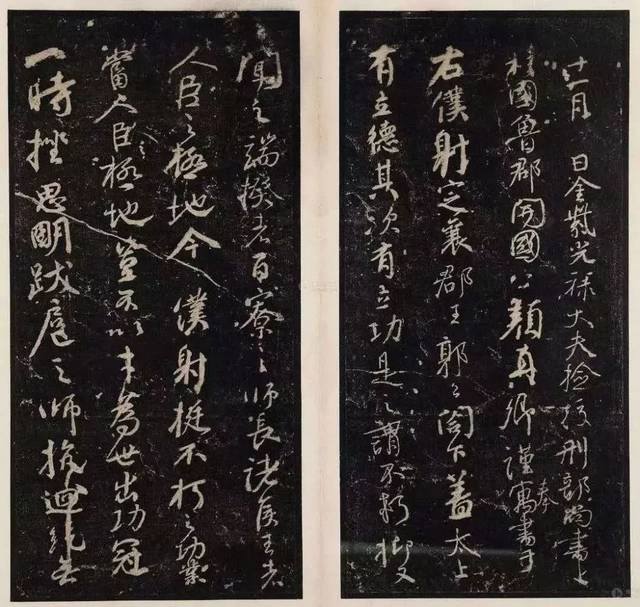 十一月 日金紫光祿大夫檢校刑部尚書上
柱國魯郡開國公顏真卿謹寓奉書于
右僕射定襄郡王郭公閤下蓋太上
有立德其次有立功是之謂不朽抑又
聞之端揆者百寮之師長諸侯王者
人臣之極地今僕射挺不朽之功業
當人臣之極地豈不以才為世出功冠
一時挫思明跋扈之師抗迴紇無